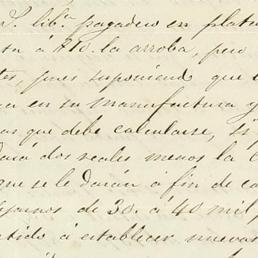 S. lib.ˢ pagadero en plata
sa á $10. la arroba, pero
tes, pues suponiendo que
ca en su manufactura y
as que debe calcularse, si
dará dos reales menos la
que se le darán á fin de ca
de 30. á 40 mil,
tido á establecer nuevas